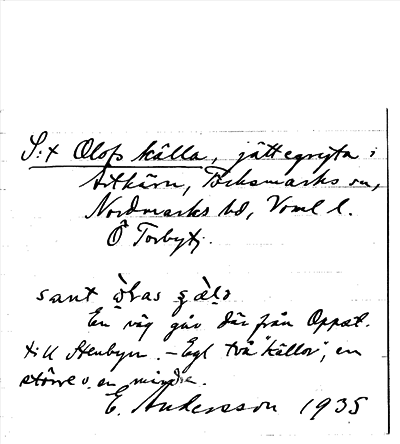 S:t Olofs källa, jättegryta i
Artkärn, Töcksmarks sn,
Nordmarks hd, Vrml l.
Ö Torbyt.
sant
En väg går där från Oppst.
till Stenbyn. – Egl två "källor", en
större o. en mindre.
E. Andersson 1935